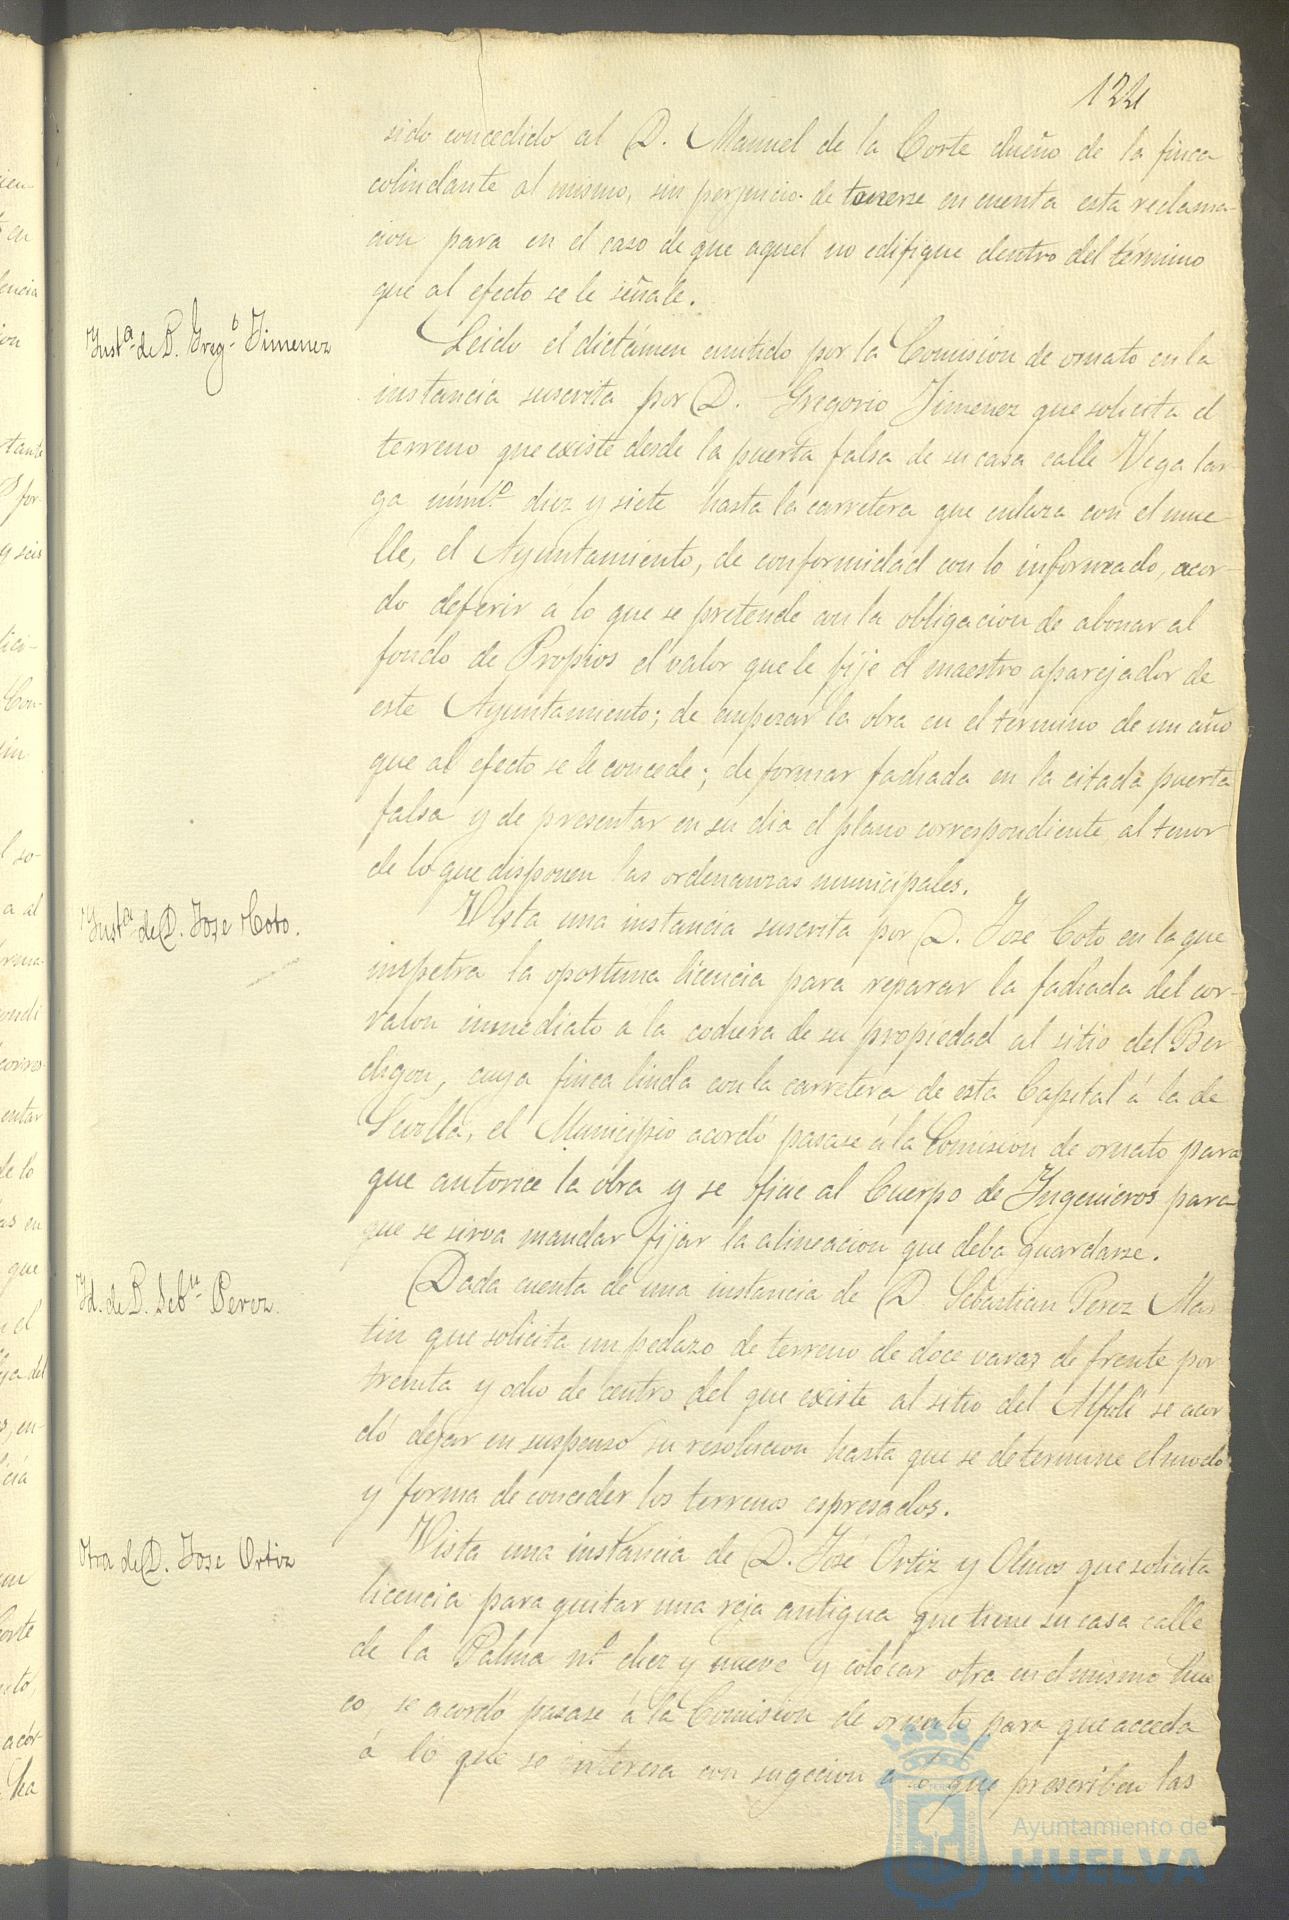 124
sido concedido al D. Manuel de la Corte dueño de la finca
colindante al mismo, sin perjuicio de tenerse en cuenta esta reclama-
cion para en el caso de que aquel no edifique dentro del término
que al efecto se le señale.
Inst.ª de D. Greg.º Jimenez
Leido el dictámen emitido por la Comision de ornato en la
instancia suscrita por D. Gregorio Jimenez que solicita el
terreno que existe desde la puerta falsa de su casa calle Vega lar-
ga núm.º diez y siete hasta la carretera que enlaza con el mue-
lle, el Ayuntamiento, de conformidad con lo informado, acor-
do deferir á lo que se pretende con la obligacion de abonar al
fondo de Propios el valor que le fije el maestro aparejador de
este Ayuntamiento; de empezar la obra en el término de un año
que al efecto se le concede; de formar fachada en la citada puerta
falsa y de presentar en su dia el plano correspondiente, al tenor
de lo que disponen las ordenanzas municipales.
Inst.ª de D. Jose Coto.
Vista una instancia suscrita por D. Jose Coto en la que
impetra la oportuna licencia para reparar la fachada del cor-
ralon inmediato a la cochera de su propiedad al sitio del Ber
digon, cuya finca linda con la carretera de esta Capital á la de
Sevilla, el Municipio acordó pasase á la Comision de ornato para
que autorice la obra y se oficie al Cuerpo de Ingenieros para
que se sirva mandar fijar la alineacion que deba guardarse.
Id. de D. Seb.n Perez.
Dada cuenta de una instancia de D. Sebastian Perez Mar
tin que solicita un pedazo de terreno de doce varas de frente por
treinta y ocho de centro del que existe al sitio del Alfolí se acor
dó dejar en suspenso su resolucion hasta que se determine el modo
y forma de conceder los terrenos espresados.
Otra de D. Jose Ortiz
Vista una instancia de D. José Ortiz y Olmos que solicita
licencia para quitar una reja antigua que tiene su casa calle
de la Palma n.º diez y nueve y colocar otra en el mismo hue
co, se acordó pasase á la Comision de ornato para que acceda
á lo que se interesa con sugecion á lo que prescriben las
Ayuntamiento de
HUELVA